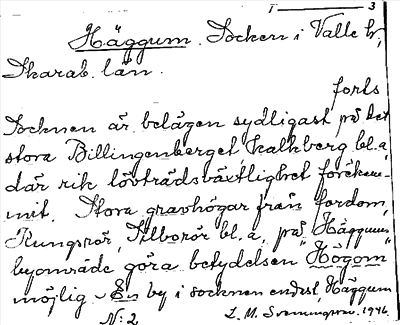 I ——— 3
Häggum. Socken i Valle hr,
Skarab. län.
forls
Socknen är belägen sydligast på det
stora Billingenberget, kalkberg bl.a.
där rik lövträdsväxtlighet förekom-
mit. Stora gravhögar från fordom,
på Häggums
byområde göra betydelsen "Högom"
möjlig - En by i socknen endast, Häggum
N:2 L. M. Svenungsson. 1946.